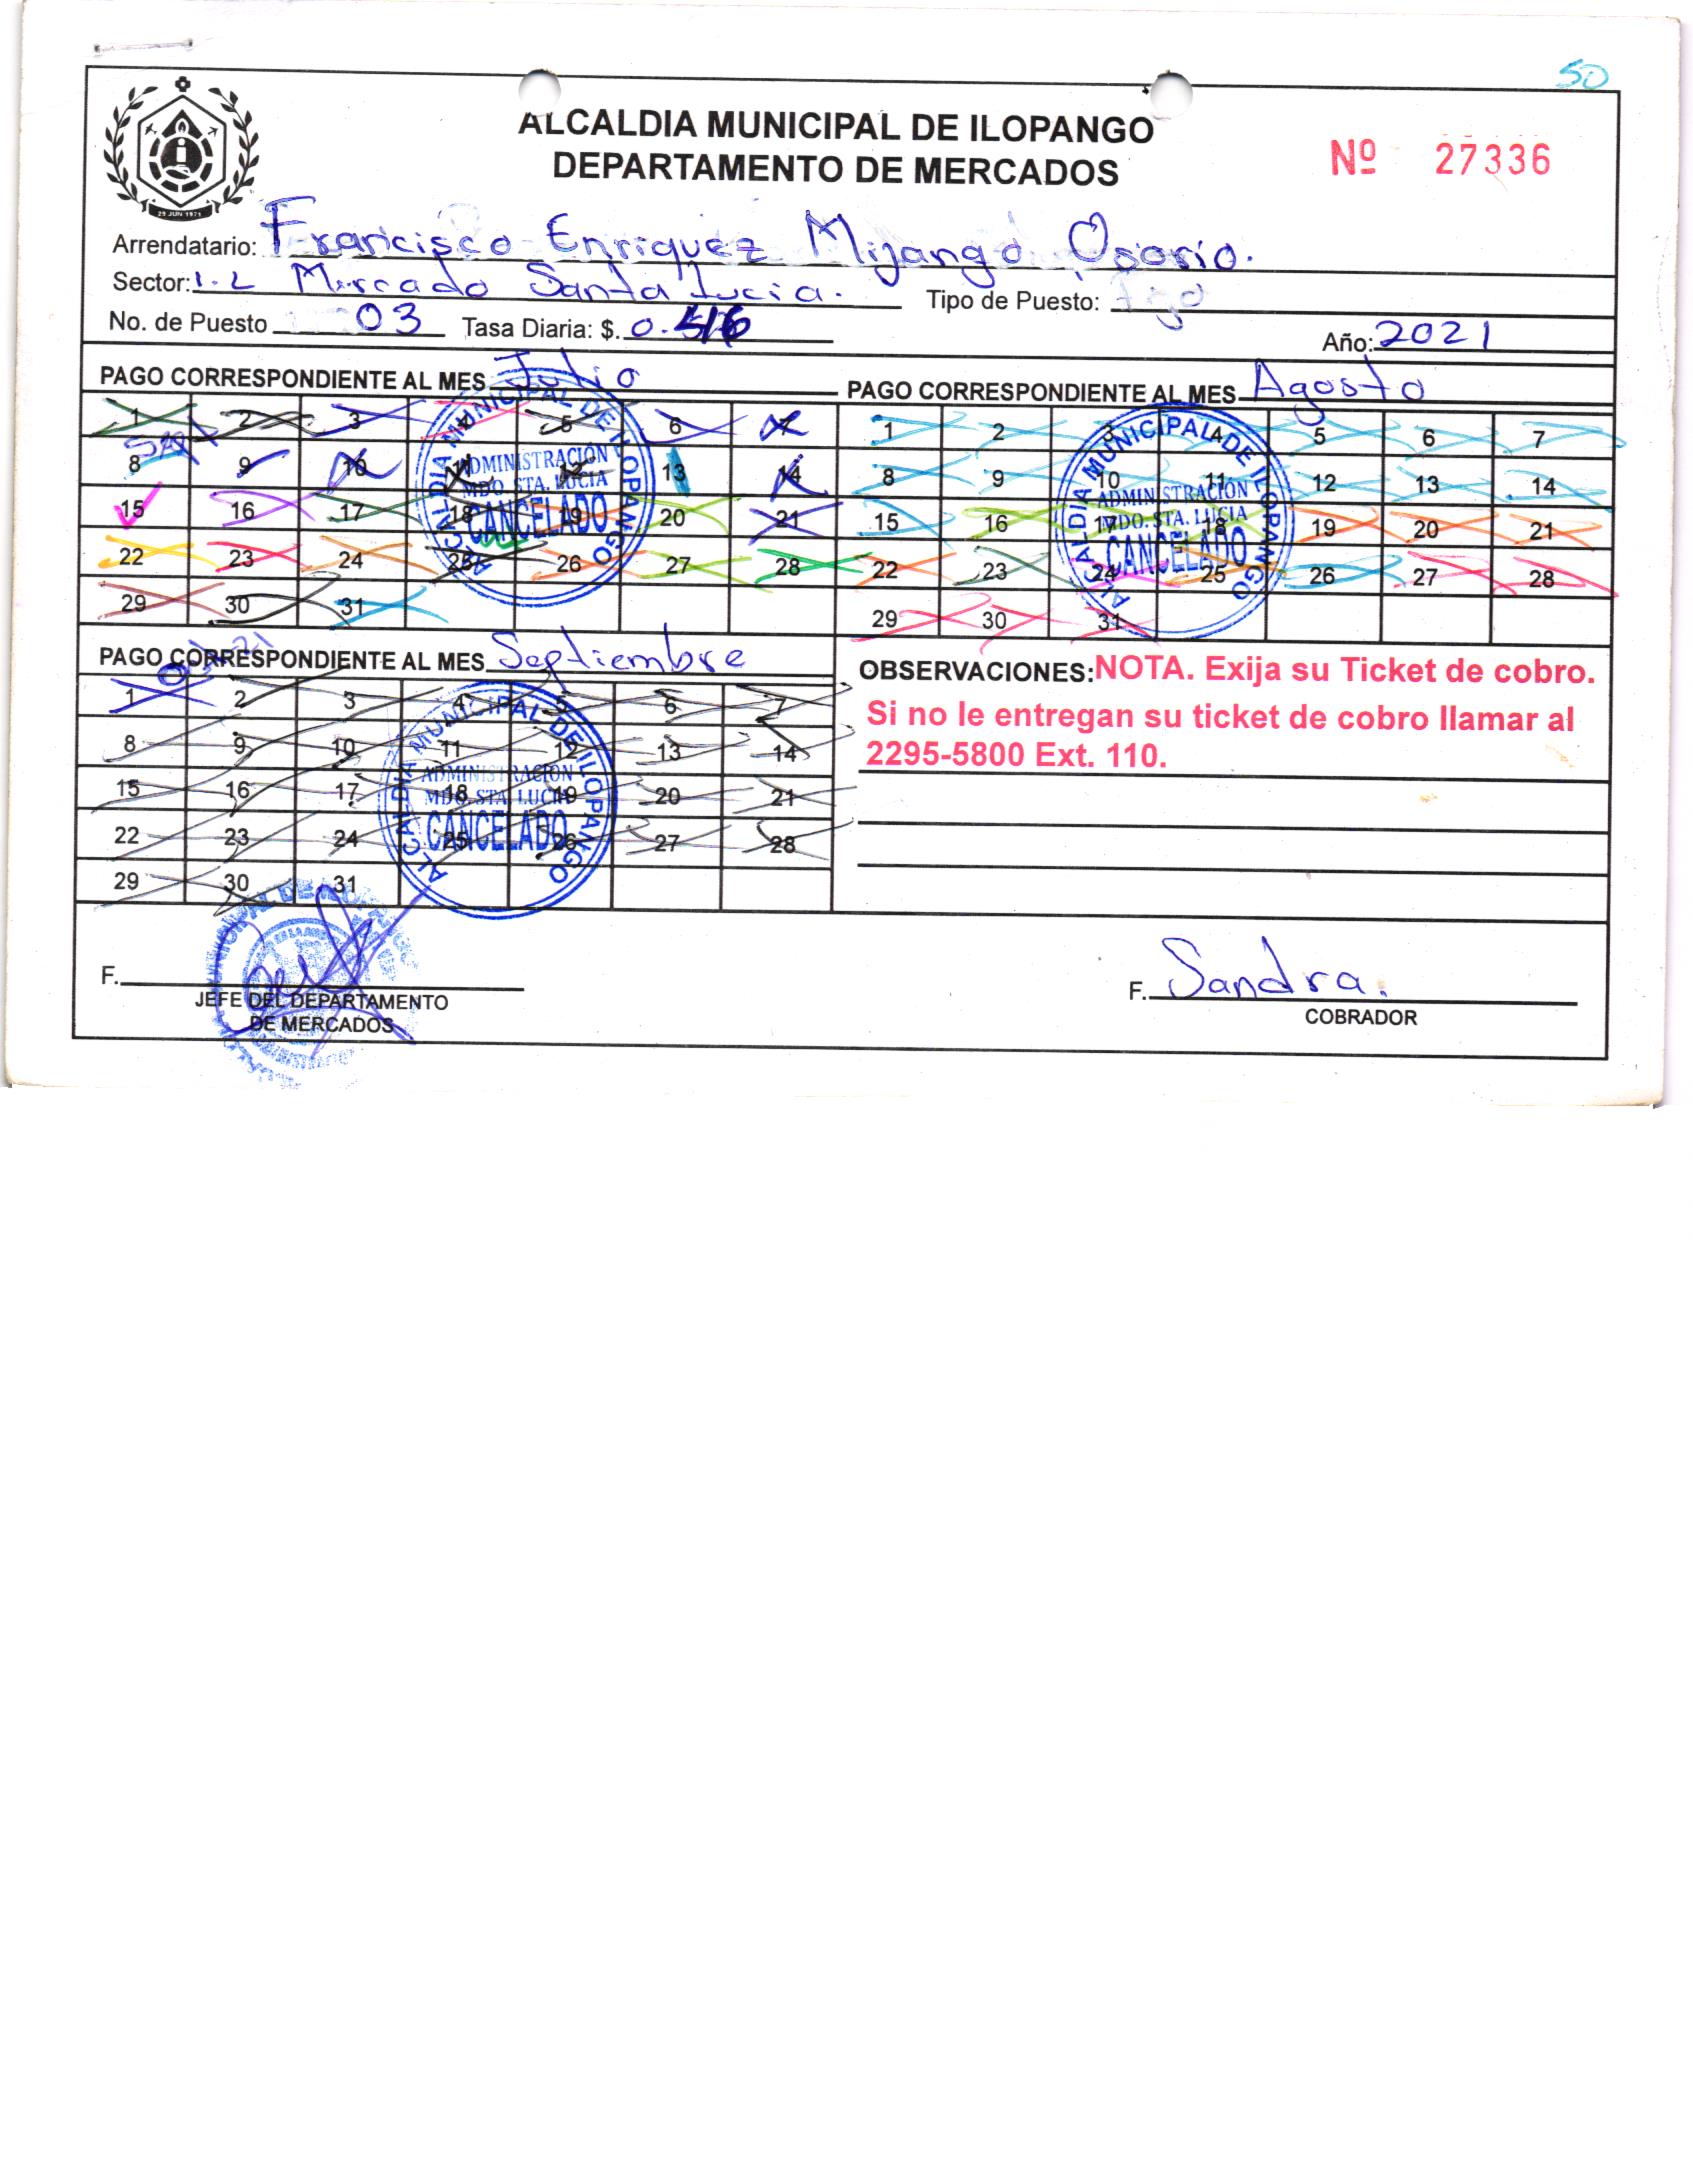 50
ALCALDIA MUNICIPAL DE ILOPANGO
DEPARTAMENTO DE MERCADOS
Nº 27336
29 JUN 1971
Arrendatario: Francisco Enriquez Mijango Osorio.
Sector: 1-L Mercado Santa Lucia. Tipo de Puesto:
No. de Puesto 03 Tasa Diaria: $. 0.
Año: 2021
PAGO CORRESPONDIENTE AL MES Julio
1 2 3 4 5 6 7
8 9 10 11 12 13 14
15 16 17 18 19 20 21
22 23 24 25 26 27 28
29 30 31
ALCALDIA MUNICIPAL DE ILOPANGO
ADMINISTRACIÓN
MDO. STA. LUCIA
CANCELADO
PAGO CORRESPONDIENTE AL MES Agosto
1 2 3 4 5 6 7
8 9 10 11 12 13 14
15 16 17 18 19 20 21
22 23 24 25 26 27 28
29 30 31
ALCALDIA MUNICIPAL DE ILOPANGO
ADMINISTRACIÓN
MDO. STA. LUCIA
CANCELADO
PAGO CORRESPONDIENTE AL MES Septiembre
1 2 3 4 5 6 7
8 9 10 11 12 13 14
15 16 17 18 19 20 21
22 23 24 25 26 27 28
29 30 31
ALCALDIA MUNICIPAL DE ILOPANGO
ADMINISTRACION
MDO. STA. LUCIA
CANCELADO
OBSERVACIONES: NOTA. Exija su Ticket de cobro.
Si no le entregan su ticket de cobro llamar al
2295-5800 Ext. 110.
F.
JEFE DEL DEPARTAMENTO
DE MERCADOS
F. Sandra.
COBRADOR